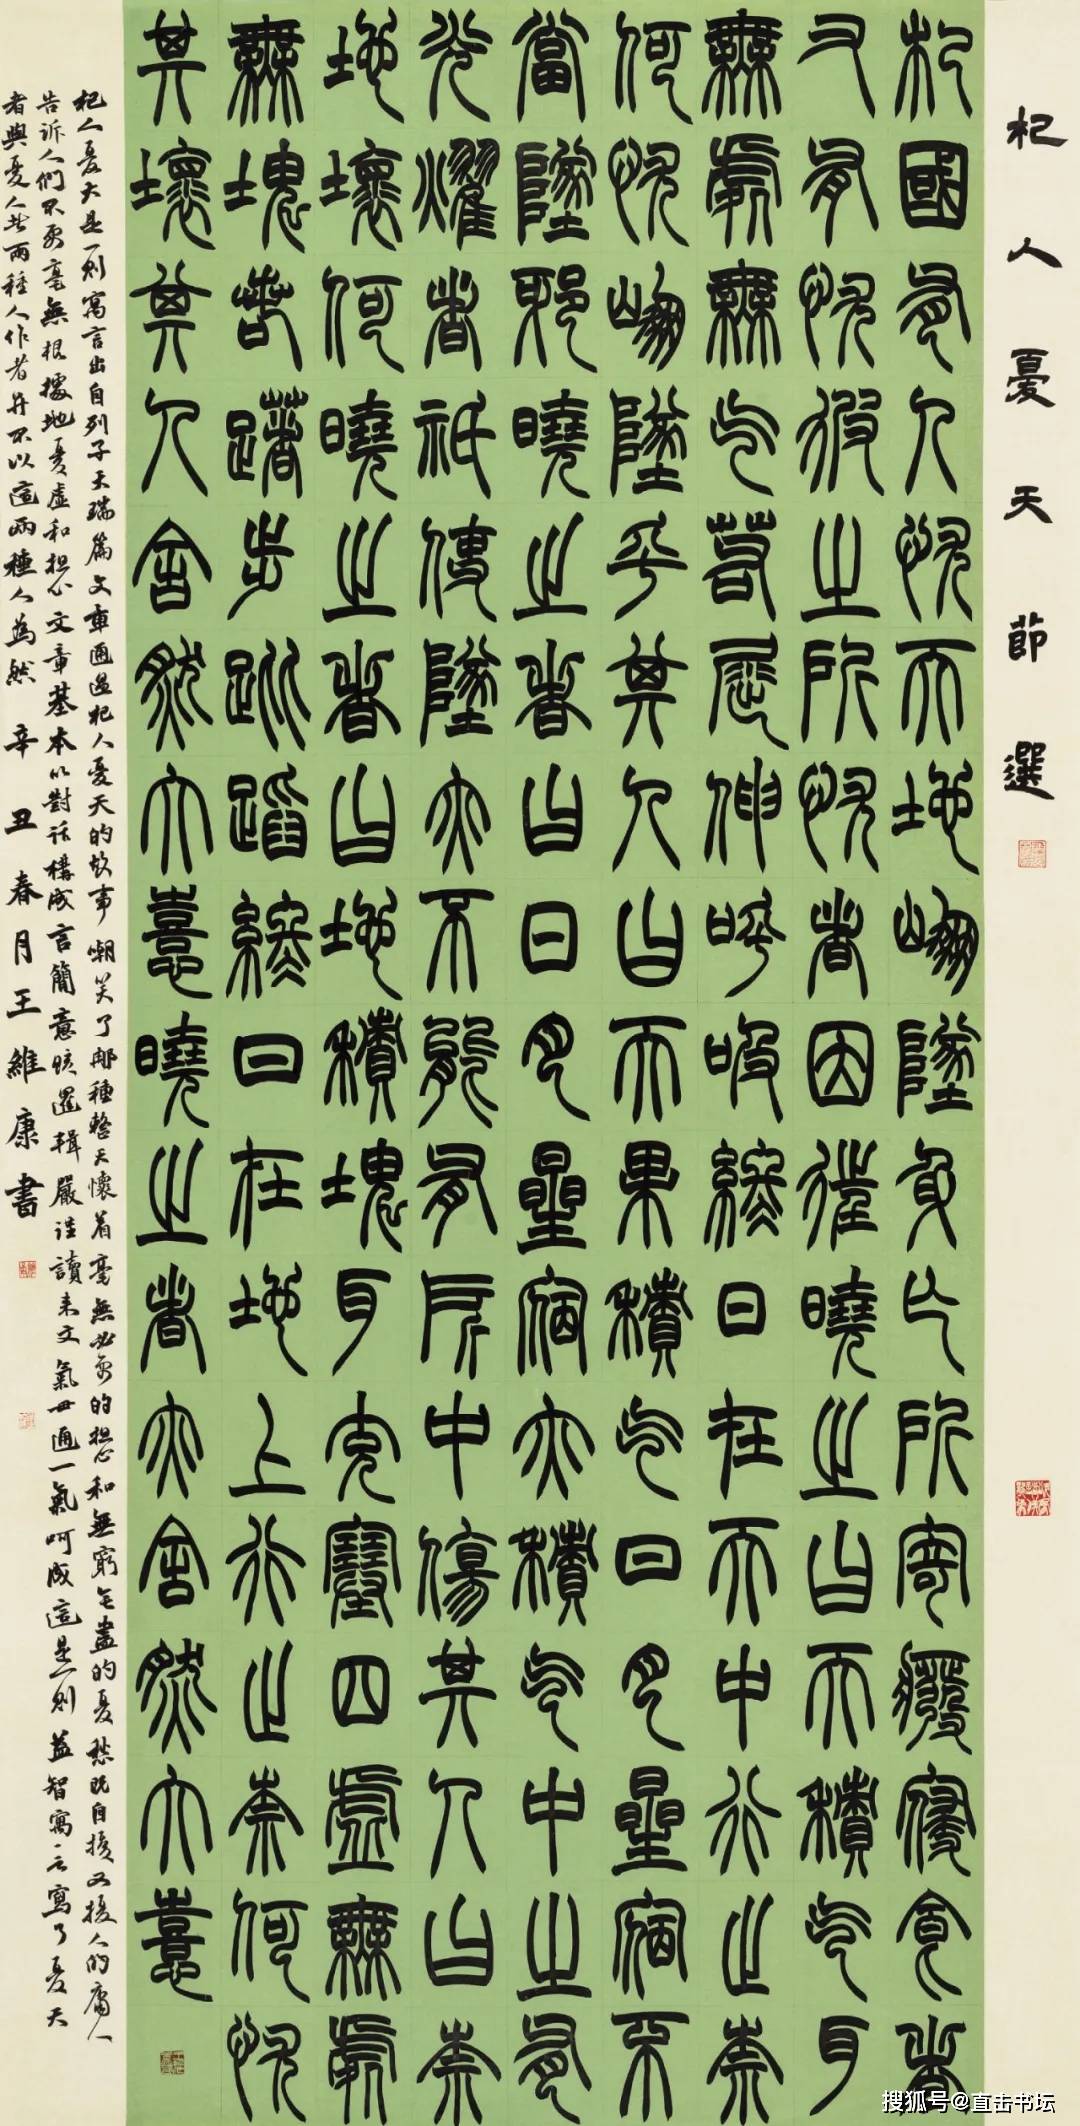 杞人憂天節選
杞國有人憂天地崩墜身亡所寄癈寢食者
又有憂彼之所憂者因往曉之曰天積氣耳
無處無氣若屈伸呼吸終日在天中行止奈
何憂崩墜乎其人曰天果積氣日月星宿不
當墜邪曉之者曰日月星宿亦積氣中之有
光耀者祗使墜亦不能有所中傷其人曰奈
地壞何曉之者曰地積塊耳充塞四虛無處
無塊若躇步跐蹈終日在地上行止奈何憂
其壞其人舍然大喜曉之者亦舍然大喜
杞人憂天是一則寓言出自列子天瑞篇文章通過杞人憂天的故事嘲笑了那種整天懷着毫無必要的担心和無窮無盡的憂愁既自擾又擾人的庸人
告诉人們不要毫無根據地憂虛和担心文章基本以對话構成言簡意賅邏輯嚴謹讀来文氣毌通一氣呵成這是一則益智寓言寫了憂天
者與憂人此兩種人作者并不以這兩種人為然 辛丑春月王維康書
搜狐号@直击书坛